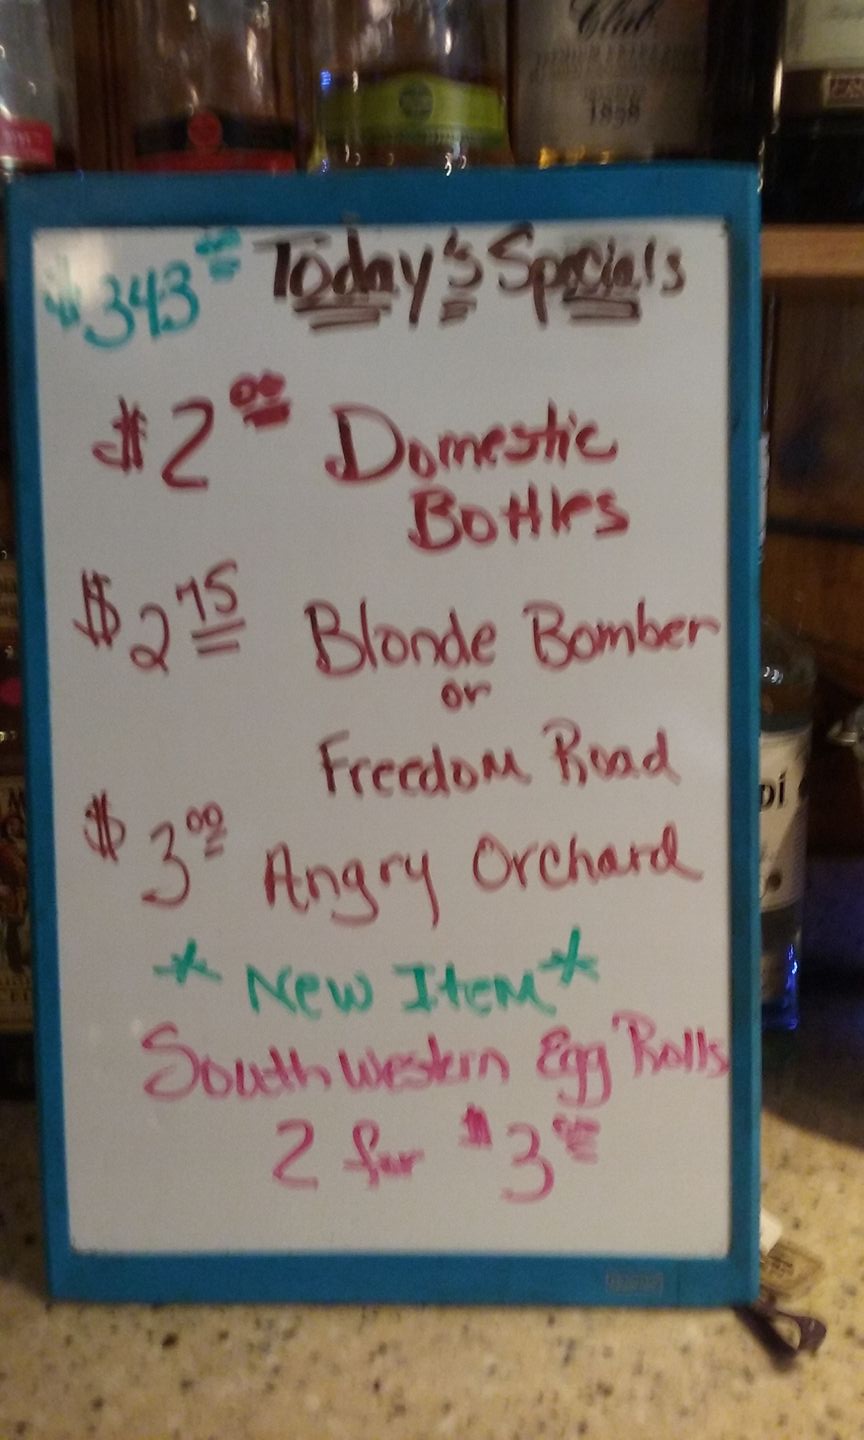 Club
1898
$343 00 Today's Specials
$2 00 Domestic
Bottles
$2 75 Blonde Bomber
or
Freedom Road
$3 00 Angry Orchard
* New Item *
Southwestern Egg Rolls
2 for $3 00